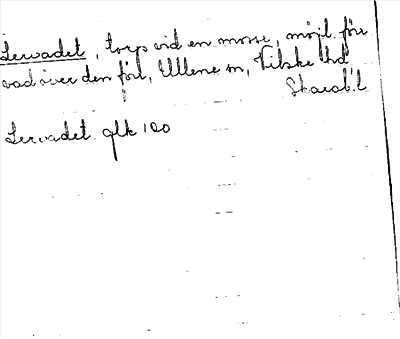 Lervadet, torp vid en mosse, möjl. förr
vad över den förb., Ullene sn, Vilske hd
Skarab. l
Lervadet glk 120